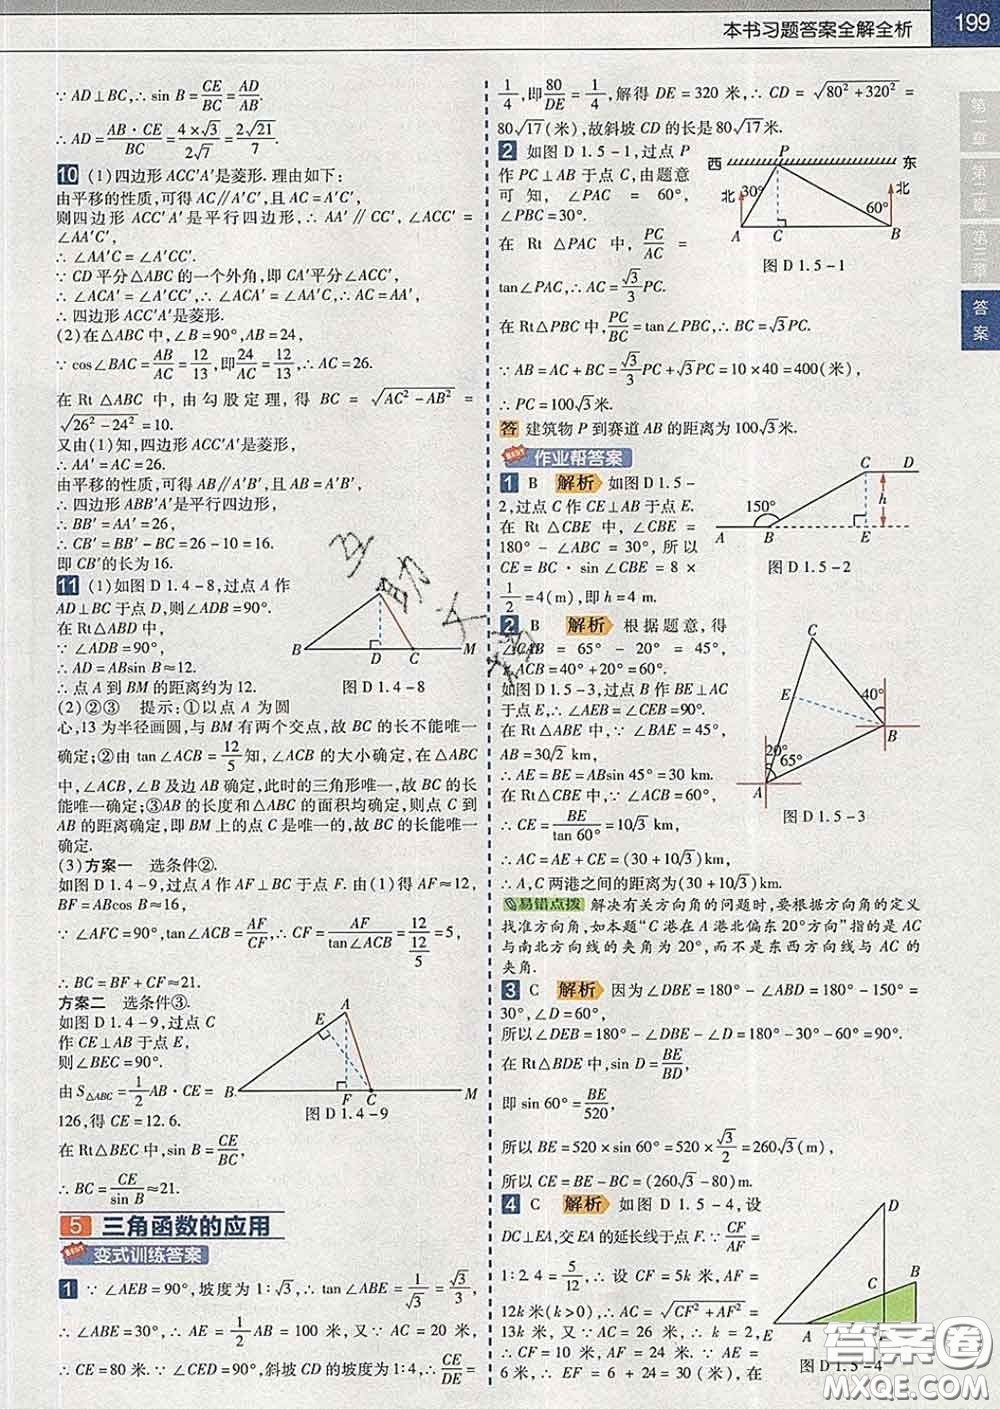 本书习题答案全解全析
199
第一章
第二章
第三章
答案
∵ AD⊥BC,∴ sin B = CE/BC = AD/AB.
∴ AD = AB·CE/BC = 4×√3/2√7 = 2√21/7.
10 (1)四边形 ACC′A′是菱形. 理由如下:
由平移的性质,可得 AC∥A′C′,且 AC = A′C′,
则四边形 ACC′A′是平行四边形,∴ AA′∥CC′,∠ACC′ =
∠AA′C′,
∴ ∠AA′C = ∠A′CC′.
∵ CD 平分△ABC 的一个外角,即 CA′平分∠ACC′,
∴ ∠ACA′ = ∠A′CC′,∴ ∠ACA′ = ∠AA′C,∴ AC = AA′,
∴ 四边形 ACC′A′是菱形.
(2)在△ABC 中,∠B = 90°,AB = 24,
∵ cos∠BAC = AB/AC = 12/13,即 24/AC = 12/13,∴ AC = 26.
在 Rt △ABC 中,由勾股定理,得 BC = √(AC² − AB²) =
√(26² − 24²) = 10.
又由(1)知,四边形 ACC′A′是菱形,
∴ AA′ = AC = 26.
由平移的性质,可得 AB∥A′B′,且 AB = A′B′,
∴ 四边形 ABB′A′是平行四边形,
∴ BB′ = AA′ = 26,
∴ CB′ = BB′ − BC = 26 − 10 = 16.
即 CB′的长为 16.
11 (1)如图 D 1.4-8,过点 A 作
AD⊥BC 于点 D,则∠ADB = 90°.
在 Rt△ABD 中,
∵ ∠ADB = 90°,
∴ AD = ABsin B≈12.
∴ 点 A 到 BM 的距离约为 12.
A
B
D
C
M
图 D 1.4-8
(2)②③ 提示:①以点 A 为圆
心,13 为半径画圆,与 BM 有两个交点,故 BC 的长不能唯一
确定;②由 tan∠ACB = 12/5 知,∠ACB 的大小确定,在△ABC
中,∠ACB,∠B 及边 AB 确定,此时的三角形唯一,故 BC 的长
能唯一确定;③AB 的长度和△ABC 的面积均确定,则点 C 到
AB 的距离确定,即 BM 上的点 C 是唯一的,故 BC 的长能唯一
确定.
(3)方案一 选条件②.
如图 D 1.4-9,过点 A 作 AF⊥BC 于点 F. 由(1)得 AF≈12,
BF = ABcos B≈16,
∵ ∠AFC = 90°,tan∠ACB = AF/CF,∴ CF = AF/tan∠ACB ≈ 12/(12/5) = 5,
∴ BC = BF + CF≈21.
方案二 选条件③.
如图 D 1.4-9,过点 C
作 CE⊥AB 于点 E,
则∠BEC = 90°.
由 S△ABC = 1/2 AB·CE =
126,得 CE = 12.6.
在 Rt△BEC 中,sin B = CE/BC,
∴ BC = CE/sin B ≈21.
A
E
B
F
C
M
图 D 1.4-9
5 三角函数的应用
变式训练答案
1 ∵ ∠AEB = 90°,坡度为 1∶√3,∴ tan∠ABE = 1/√3 = √3/3,
∴ ∠ABE = 30°,∴ AE = 1/2 AB = 100 米,又∵ AC = 20 米,
∴ CE = 80 米.∵ ∠CED = 90°,斜坡 CD 的坡度为 1∶4,∴ CE/DE =
1/4,即 80/DE = 1/4,解得 DE = 320 米,∴ CD = √(80² + 320²) =
80√17(米),故斜坡 CD 的长是 80√17米.
2 如图 D 1.5-1,过点 P
作 PC⊥AB 于点 C,由题意
可知,∠PAC = 60°,
∠PBC = 30°.
在 Rt △PAC 中,PC/AC =
tan∠PAC,∴ AC = √3/3 PC.
西
P
东
北
30°
60°
北
A
C
B
图 D 1.5-1
在 Rt△PBC 中,PC/BC = tan∠PBC,∴ BC = √3PC.
∵ AB = AC + BC = √3/3 PC + √3PC = 10×40 = 400(米),
∴ PC = 100√3米.
答 建筑物 P 到赛道 AB 的距离为 100√3米.
作业帮答案
1 B 解析 如图 D 1.5-
2,过点 C 作 CE⊥AB 于点 E.
在 Rt △CBE 中,∠CBE =
180° − ∠ABC = 30°,所以
CE = BC·sin∠CBE = 8×
1/2 = 4(m),即 h = 4 m.
C
D
h
150°
A
B
E
图 D 1.5-2
2 B 解析 根据题意,得
∠CAB = 65° − 20° = 45°,
∠ACB = 40° + 20° = 60°.
如图 D 1.5-3,过点 B 作 BE⊥AC
于点 E,∴ ∠AEB = ∠CEB = 90°.
在 Rt△ABE 中,∵ ∠BAE = 45°,
AB = 30√2 km,
∴ AE = BE = ABsin 45° = 30 km.
在 Rt△CBE 中,∵ ∠ACB = 60°,
∴ CE = BE/tan 60° = 10√3 km,
∴ AC = AE + CE = (30 + 10√3)km,
∴ A,C 两港之间的距离为(30 + 10√3)km.
C
E
40°
B
20°
65°
A
图 D 1.5-3
易错点拨 解决有关方向角的问题时,要根据方向角的定义
找准方向角,如本题“C 港在 A 港北偏东 20°方向”指的是 AC
与南北方向线的夹角为 20°,而不是东西方向线与 AC 的
夹角.
3 C 解析 因为∠DBE = 180° − ∠ABD = 180° − 150° =
30°,∠D = 60°,
所以∠DEB = 180° − ∠DBE − ∠D = 180° − 30° − 60° = 90°.
在 Rt△BDE 中,sin D = BE/BD,
即 sin 60° = BE/520,
所以 BE = 520×sin 60° = 520×√3/2 = 260√3(m),
所以 CE = BE − BC = (260√3 − 80)m.
4 C 解析 如图 D 1.5-4,设
DC⊥EA,交 EA 的延长线于点 F.∵ CF/AF =
1∶2.4 = 5/12,∴ 设 CF = 5k 米,AF =
12k 米(k>0),∴ AC = √(CF² + AF²) =
13k 米,又∵ AC = 26 米,∴ k = 2,
∴ CF = 10 米,AF = 24 米.∵ AE =
6 米,∴ EF = 6 + 24 = 30(米),在
D
C
B
E
A
图 D 1.5-4
互助文档
答案圈
MXQE.COM